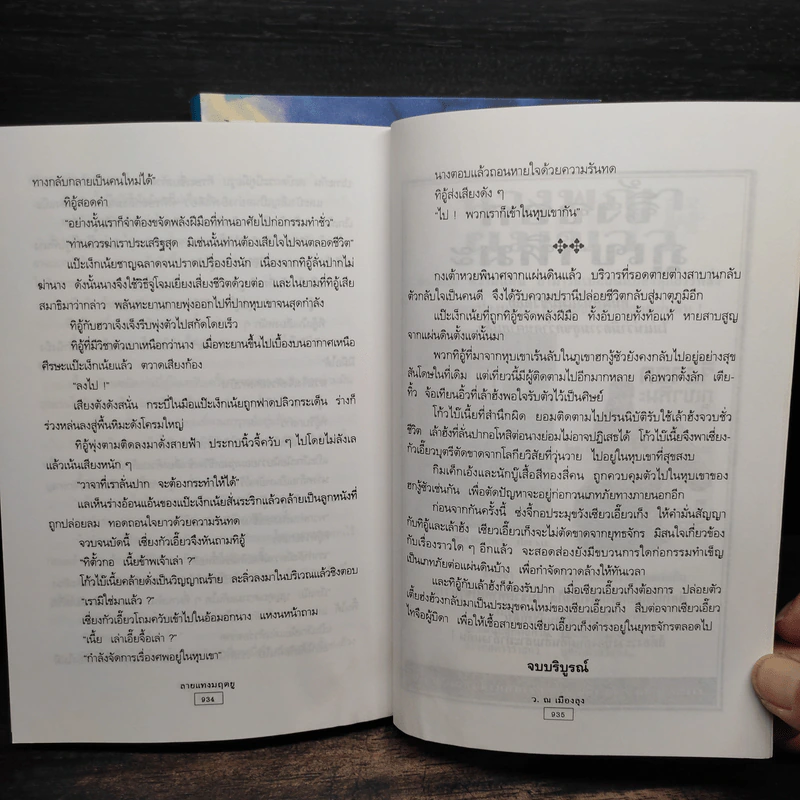 ทางกลับกลายเป็นคนใหม่ได้"
ทิอู้สอดคำ
"อย่างนั้นเราก็จำต้องขจัดพลังฝีมือที่ท่านอาศัยไปก่อกรรมทำชั่ว"
"ท่านควรฆ่าเราประเสริฐสุด มิเช่นนั้นท่านต้องเสียใจไปจนตลอดชีวิต"
แป๊ะเง็กเนี้ยชาญฉลาดจนปราดเปรื่องยิ่งนัก เนื่องจากทิอู้ลั่นปากไม่
ฆ่านาง ดังนั้นนางจึงใช้วิธีจู่โจมเยี่ยงเสี่ยงชีวิตด้วยต่อ และในยามที่ทิอู้เสีย
สมาธิมาว่ากล่าว พลันทะยานกายพุ่งออกไปที่ปากหุบเขาจนสุดกำลัง
ทิอู้กับฮวาเจ็งเจ็งรีบพุ่งตัวไปสกัดโดยเร็ว
ทิอู้ที่มีวิชาตัวเบาเหนือกว่านาง เมื่อทะยานขึ้นไปเบื้องบนอากาศเหนือ
ศีรษะแป๊ะเง็กเนี้ยแล้ว ตวาดเสียงก้อง
"ลงไป !"
เสียงดังดังสนั่น กระบี่ในมือแป๊ะเง็กเนี้ยถูกฟาดปลิวกระเด็น ร่างก็
ร่วงหล่นลงสู่พื้นหิมะดังโครมใหญ่
ทิอู้พุ่งตามติดลงมาดั่งสายฟ้า ประกบนิ้วจี้ควับ ๆ ไปโดยไม่ลังเล
แล้วเน้นเสียงหนัก ๆ
"วาจาที่เราลั่นปาก จะต้องกระทำให้ได้"
แลเห็นร่างอ้อนแอ้นของแป๊ะเง็กเนี้ยสั่นระริกแล้วคล้ายเป็นลูกหนังที่
ถูกปล่อยลม ทอดถอนใจยาวด้วยความรันทด
จวบจนบัดนี้ เซี่ยงกัวเอี๊ยวจึงหันถามทิอู้
"ทิตั้วกอ เนี้ยข้าพเจ้าเล่า ?"
โก้วไบ๊เนี้ยคล้ายดั่งเป็นวิญญาณร้าย ละลิ่วลงมาในบริเวณแล้วชิงตอบ
"เรามิใช่มาแล้ว ?"
เซี่ยงกัวเอี๊ยวโถมควับเข้าไปในอ้อมอกนาง แหงนหน้าถาม
"เนี้ย เล่าเอี๊ยจื้อเล่า ?"
"กำลังจัดการเรื่องศพอยู่ในหุบเขา"
ลายแทงมฤตยู
934
นางตอบแล้วถอนหายใจด้วยความรันทด
ทิอู้ส่งเสียงดัง ๆ
"ไป ! พวกเราก็เข้าในหุบเขากัน"
กงเต้าหวยพินาศจากแผ่นดินแล้ว บริวารที่รอดตายต่างสาบานกลับ
ตัวกลับใจเป็นคนดี จึงได้รับความปรานีปล่อยชีวิตกลับสู่มาตุภูมิอีก
แป๊ะเง็กเนี้ยที่ถูกทิอู้ขจัดพลังฝีมือ ทั้งอับอายทั้งท้อแท้ หายสาบสูญ
จากแผ่นดินตั้งแต่นั้นมา
พวกทิอู้ที่มาจากหุบเขาเร้นลับในภูเขาฮกงู้ซัวยังคงกลับไปอยู่อย่างสุข
สันโดษในที่เดิม แต่เที่ยวนี้มีผู้ติดตามไปอีกมากหลาย คือพวกตั้งลัก เตีย-
ทิ้ว จ้อเทียนอิ้วที่เล้าฮั้งพอใจรับตัวไว้เป็นศิษย์
โก้วไบ๊เนี้ยที่สำนึกผิด ยอมติดตามไปรนนิบัติรับใช้เล้าฮั้งจวบชั่ว
ชีวิต เล้าฮั้งที่ลั่นปากอโหสิต่อนางย่อมไม่อาจปฏิเสธได้ โก้วไบ๊เนี้ยจึงพาเซี่ยง-
กัวเอี๊ยวบุตรีตัดขาดจากโลกียวิสัยที่วุ่นวาย ไปอยู่ในหุบเขาที่สุขสงบ
กิมเค็กเอ้งและนักบู๊เสื้อสีทองสี่คน ถูกควบคุมตัวไปในหุบเขาของ
ฮกงู้ซัวเช่นกัน เพื่อตัดปัญหาจะอยู่ก่อกวนเภทภัยทางภายนอกอีก
ก่อนจากกันครั้งนี้ ซ่งจี้กอประมุขวังเซียวเอี๊ยวเก็ง ให้คำมั่นสัญญา
กับทิอู้และเล้าฮั้ง เซียวเอี๊ยวเก็งจะไม่ตัดขาดจากยุทธจักร มิสนใจเกี่ยวข้อง
กับเรื่องราวใด ๆ อีกแล้ว จะสอดส่องยังมีขบวนการใดก่อกรรมทำเข็ญ
เป็นเภทภัยต่อแผ่นดินบ้าง เพื่อกำจัดกวาดล้างให้ทันเวลา
และทิอู้กับเล้าฮั้งก็ต้องรับปาก เมื่อเซียวเอี๊ยวเก็งต้องการ ปล่อยตัว
เตี้ยฮ่งฮ้วงกลับมาเป็นประมุขคนใหม่ของเซียวเอี๊ยวเก็ง สืบต่อจากเซียวเอี๊ยว
ไทจือผู้บิดา เพื่อให้เชื้อสายของเซียวเอี๊ยวเก็งดำรงอยู่ในยุทธจักรตลอดไป
จบบริบูรณ์
ว. ณ เมืองลุง
935